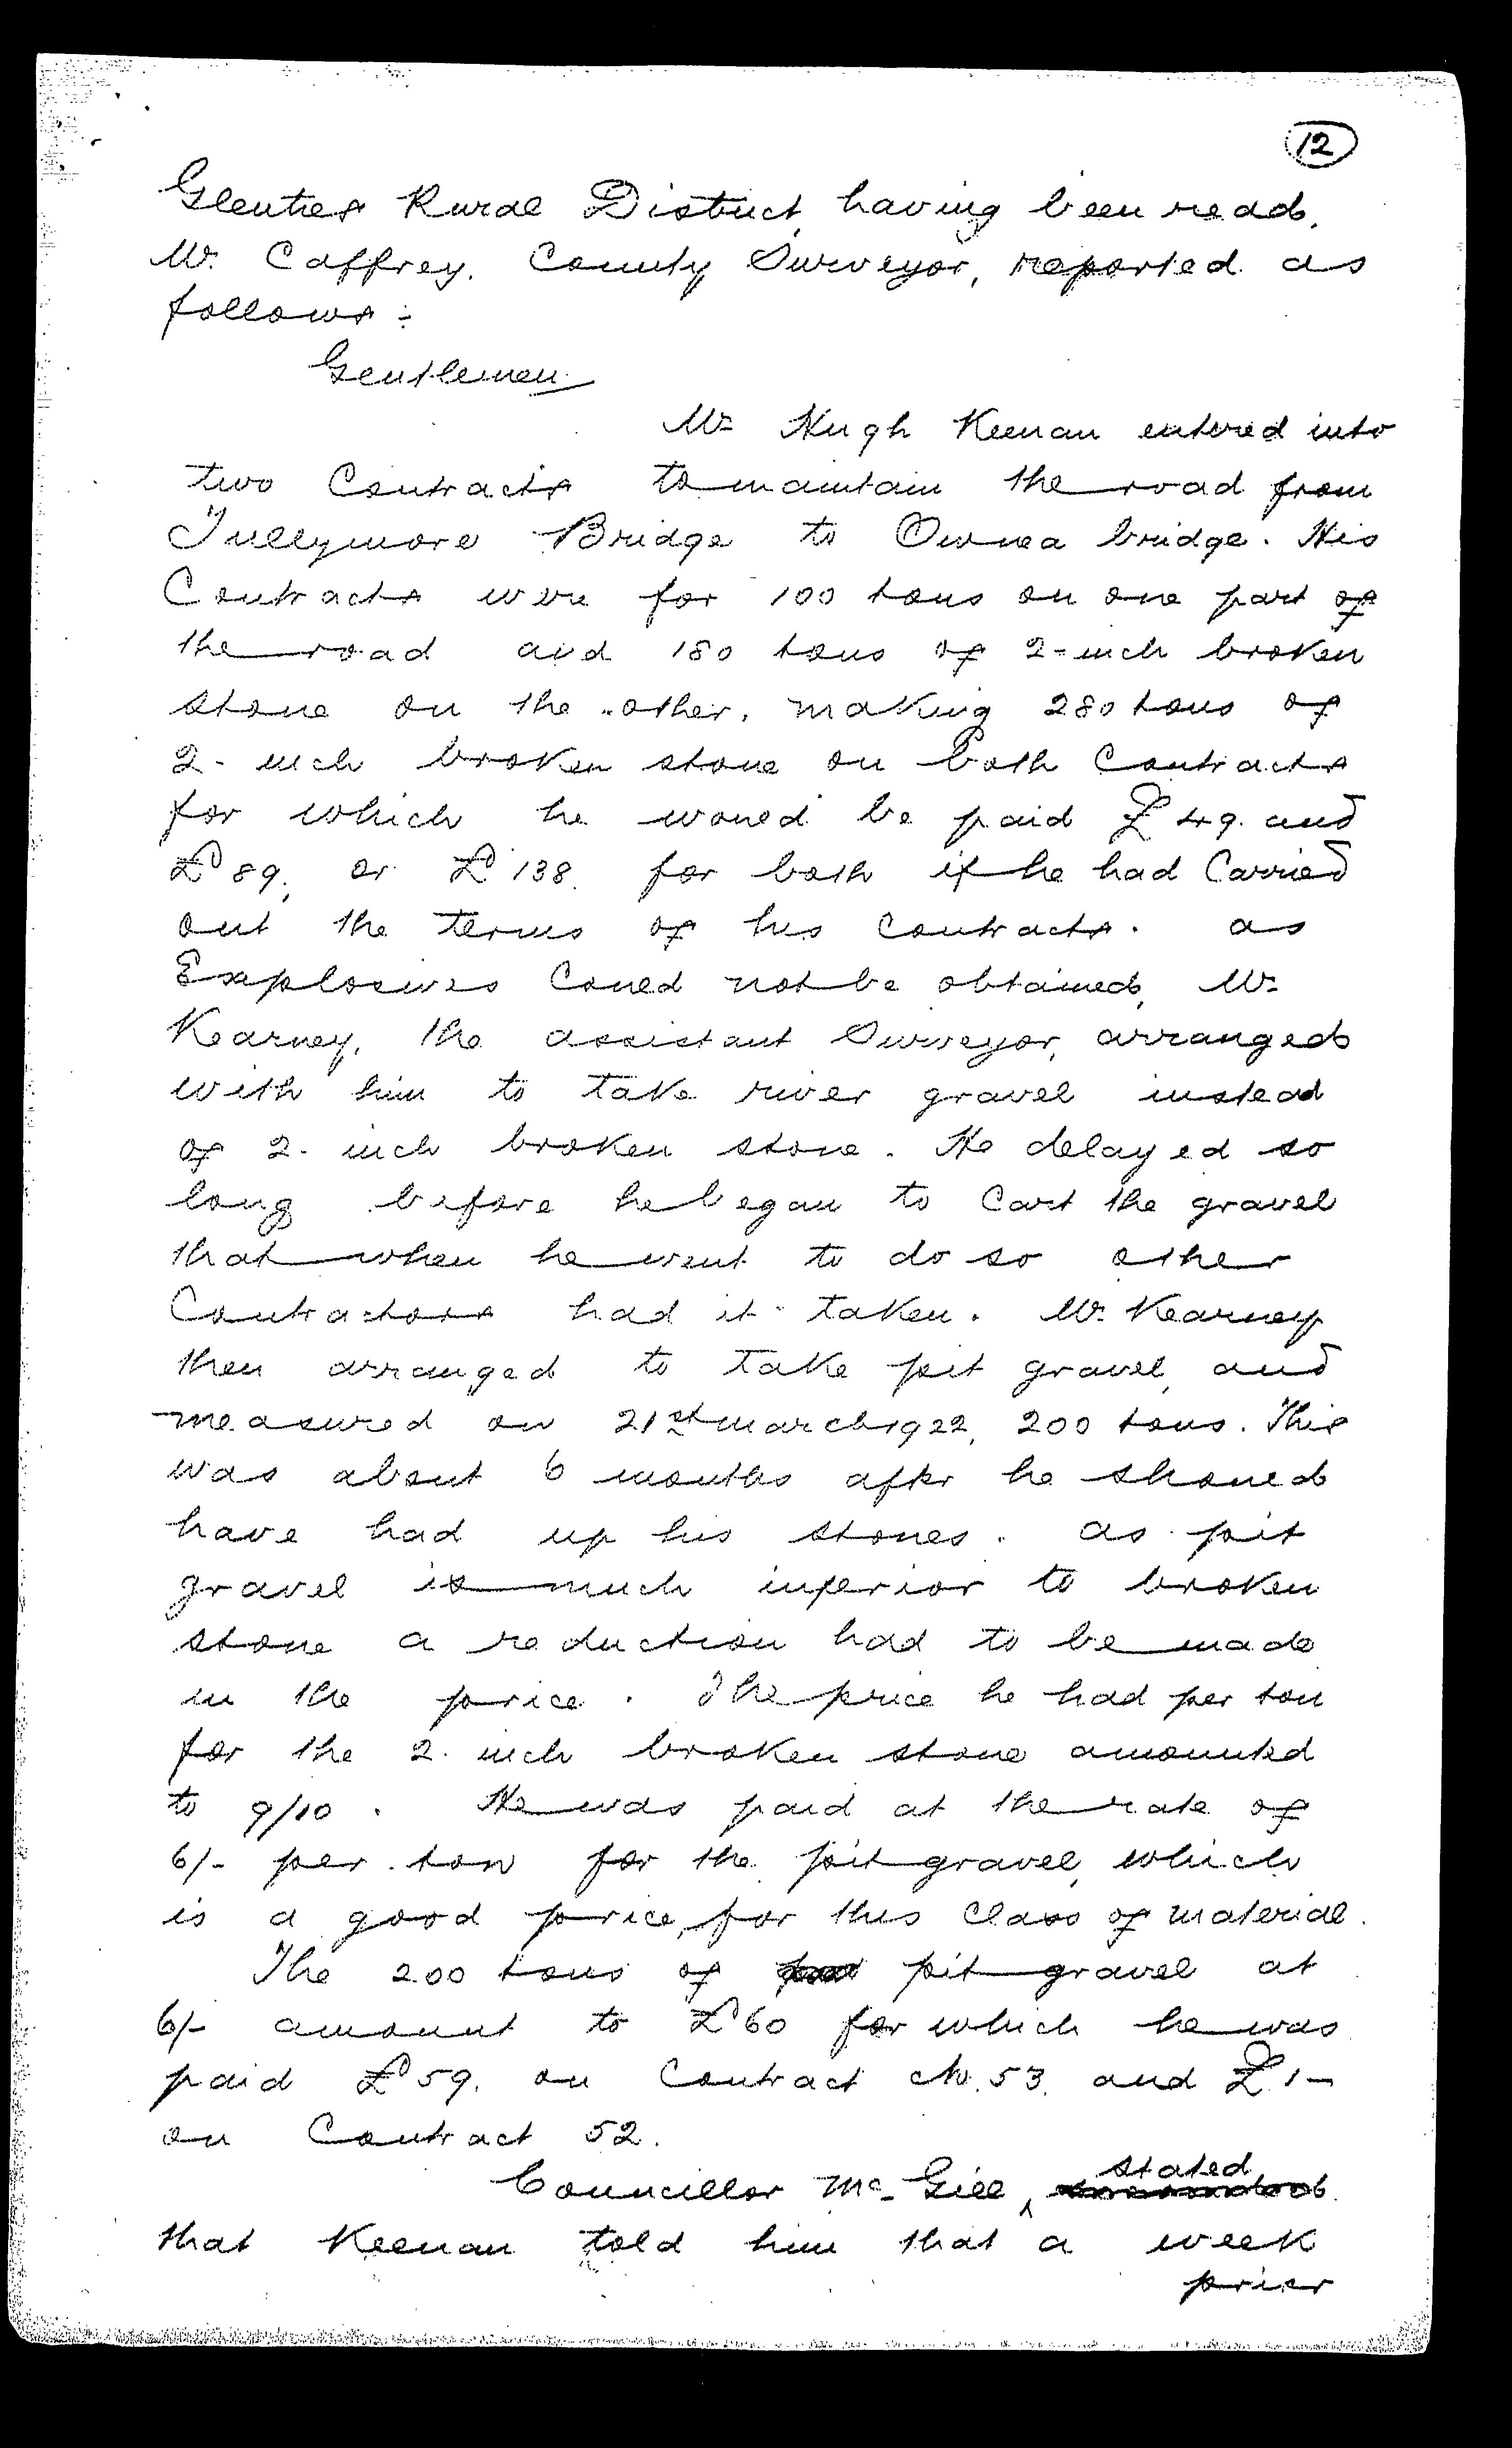 12
Glenties Rural District, having been read,
Mr. Caffrey, County Surveyor, reported as
follows :-
Gentlemen
Mr Hugh Keenan entered into
two Contracts to maintain the road from
Tullymore Bridge to Ownea bridge. His
Contracts were for 100 tons on one part of
the road and 180 tons of 2-inch broken
stone on the other, making 280 tons of
2-inch broken stone on both Contracts
for which he would be paid £49. and
£89, or £138. for both if he had Carried
out the terms of his Contracts. as
Explosives Could not be obtained, Mr
Kearney, the assistant Surveyor, arranged
with him to take river gravel instead
of 2-inch broken stone. He delayed so
long before he began to Cart the gravel
that when he went to do so other
Contractors had it taken. Mr. Kearney
then arranged to take pit gravel, and
measured on 21st march 1922, 200 tons. This
was about 6 months after he should
have had up his stones. as pit
gravel is much inferior to broken
stone a reduction had to be made
in the price. The price he had per ton
for the 2-inch broken stone amounted
to 9/10. He was paid at the rate of
6/- per ton for the pit gravel, which
is a good price, for this Class of material.
The 200 tons of pit gravel at
6/- amount to £60 for which he was
paid £59. on Contract No. 53. and £1-
on Contract 52.
Councillor Mc Gill, stated
that Keenan told him that a week
prior